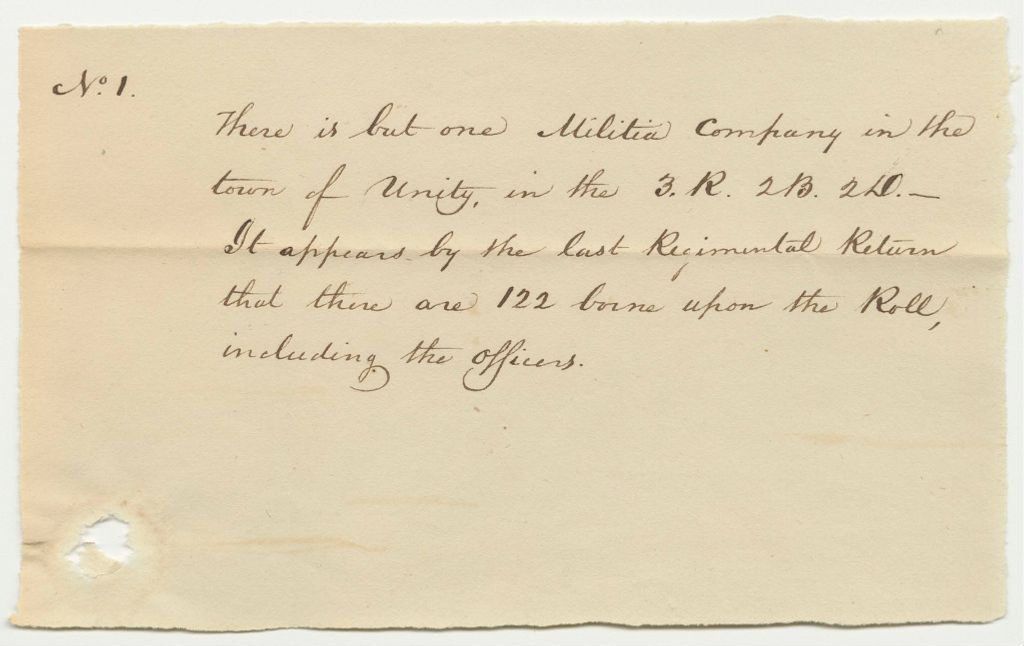 No. 1.
There is but one Militia Company in the
town of Unity, in the 3. R. 2 B. 2 D. —
It appears by the last Regimental Return
that there are 122 borne upon the Roll,
including the officers.